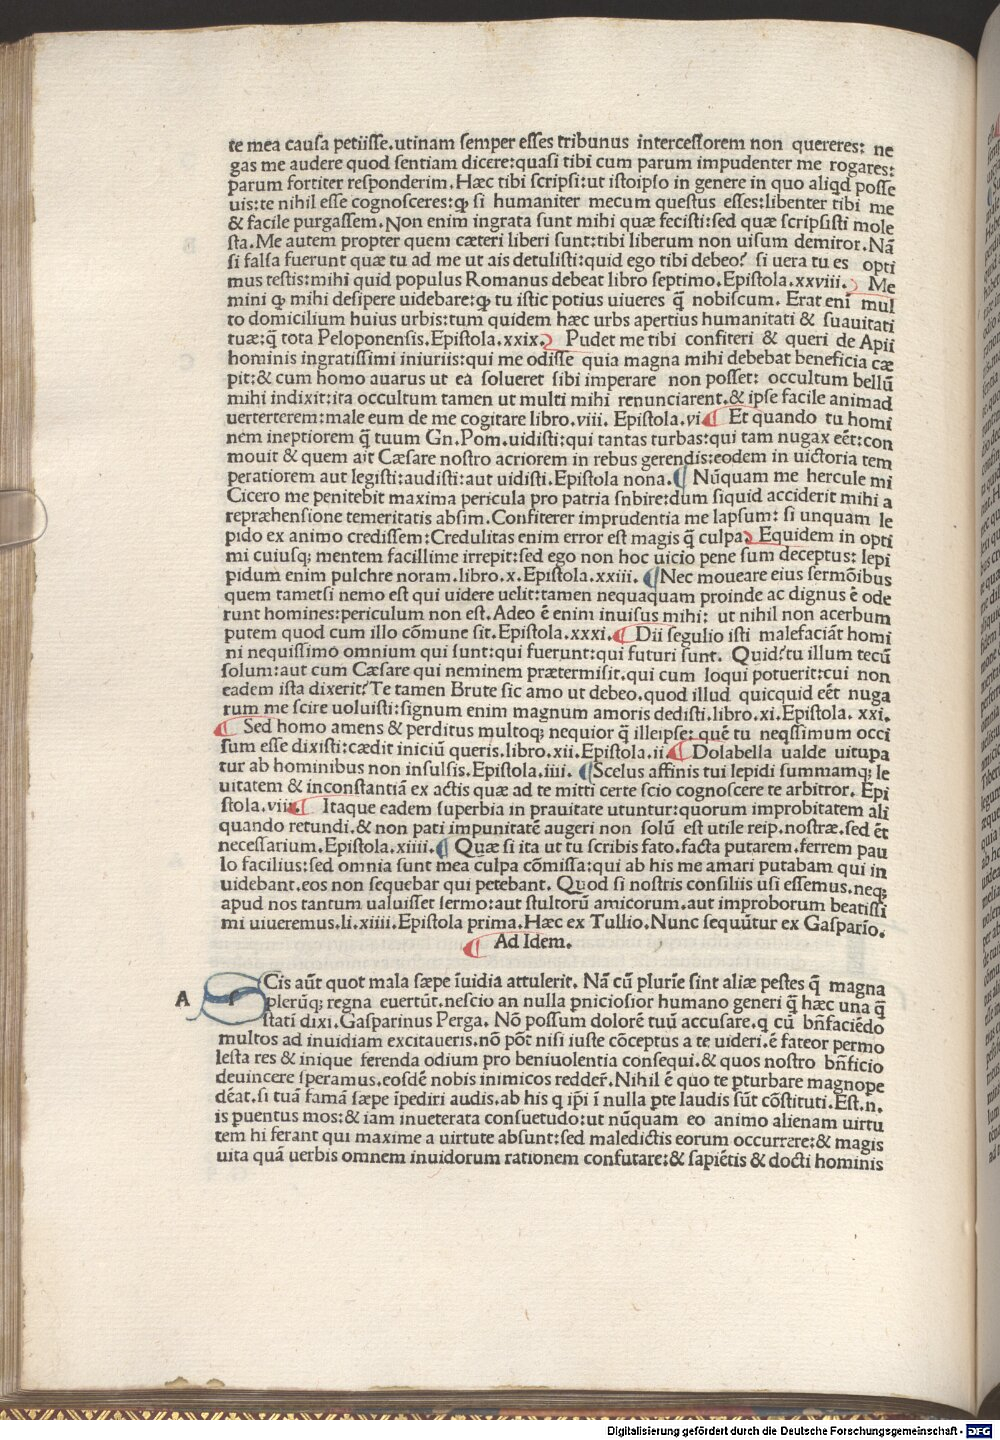 te mea cauſa petiiſſe.utinam ſemper eſſes tribunus interceſſorem non quereres: ne
gas me audere quod ſentiam dicere:quaſi tibi cum parum impudenter me rogares:
parum fortiter reſponderim.Hæc tibi ſcripſi:ut iſtoipſo in genere in quo aliqd poſſe
uis:te nihil eſſe cognoſceres:ꝙ ſi humaniter mecum queſtus eſſes:libenter tibi me
& facile purgaſſem.Non enim ingrata ſunt mihi quæ feciſti:ſed quæ ſcripſiſti mole
ſta.Me autem propter quem cæteri liberi ſunt:tibi liberum non uiſum demiror.Nā
ſi falſa fuerunt quæ tu ad me ut ais detuliſti:quid ego tibi debeo? ſi uera tu es opti
mus teſtis:mihi quid populus Romanus debeat libro ſeptimo.Epiſtola.xxviii. Me
mini ꝙ mihi deſipere uidebare:ꝙ tu iſtic potius uiueres q̄ nobiſcum. Erat eni mul
to domicilium huius urbis:tum quidem hæc urbs apertius humanitati & ſuauitati
tuæ:q̄ tota Peloponenſis.Epiſtola.xxix. Pudet me tibi confiteri & queri de Apii
hominis ingratiſſimi iniuriis:qui me odiſſe quia magna mihi debebat beneficia cæ
pit:& cum homo auarus ut ea ſolueret ſibi imperare non poſſet: occultum bellū
mihi indixit:ita occultum tamen ut multi mihi renunciarent.& ipſe facile animad
uerterterem:male eum de me cogitare libro.viii. Epiſtola.vi ¶ Et quando tu homi
nem ineptiorem q̄ tuum Gn.Pom.uidiſti:qui tantas turbas:qui tam nugax eēt:con
mouit & quem ait Cæſare noſtro acriorem in rebus gerendis:eodem in uictoria tem
peratiorem aut legiſti:audiſti:aut uidiſti.Epiſtola nona.¶ Nūquam me hercule mi
Cicero me penitebit maxima pericula pro patria ſnbire:dum ſiquid acciderit mihi a
repræhenſione temeritatis abſim.Confiterer imprudentia me lapſum: ſi unquam le
pido ex animo credissem:Credulitas enim error eſt magis q̄ culpa. Equidem in opti
mi cuiuſq; mentem facillime irrepit:ſed ego non hoc uicio pene ſum deceptus: lepi
pidum enim pulchre noram.libro.x.Epiſtola.xxiii. ¶Nec moueare eius ſermōibus
quem tametſi nemo eſt qui uidere uelit:tamen nequaquam proinde ac dignus ē ode
runt homines:periculum non eſt.Adeo ē enim inuiſus mihi: ut nihil non acerbum
putem quod cum illo cōmune ſit.Epiſtola.xxxi.¶ Dii ſegulio iſti malefaciāt homi
ni nequiſſimo omnium qui ſunt:qui fuerunt:qui futuri ſunt. Quid?tu illum tecū
ſolum:aut cum Cæſare qui neminem prætermiſit.qui cum loqui potuerit:cui non
eadem iſta dixerit?Te tamen Brute ſic amo ut debeo.quod illud quicquid eēt nuga
rum me ſcire uoluiſti:ſignum enim magnum amoris dediſti.libro.xi.Epiſtola. xxi.
¶ Sed homo amens & perditus multoq; nequior q̄ illeipſe: quē tu neqſſimum occi
ſum eſſe dixiſti:cædit iniciū queris.libro.xii.Epiſtola.ii.¶ Dolabella ualde uitupa
tur ab hominibus non inſulſis.Epiſtola.iiii. ¶Scelus affinis tui lepidi ſummamq; le
uitatem & inconſtantiā ex actis quæ ad te mitti certe ſcio cognoſcere te arbitror. Epi
ſtola.viii.¶ Itaque eadem ſuperbia in prauitate utuntur:quorum improbitatem ali
quando retundi.& non pati impunitatē augeri non ſolū eſt utile reip.noſtræ.ſed ēt
neceſſarium.Epiſtola.xiiii.¶ Quæ ſi ita ut tu ſcribis fato.facta putarem.ferrem pau
lo facilius:ſed omnia ſunt mea culpa cōmiſſa:qui ab his me amari putabam qui in
uidebant.eos non ſequebar qui petebant. Quod ſi noſtris conſiliis uſi eſſemus.neq;
apud nos tantum ualuiſſet ſermo:aut ſtultorū amicorum.aut improborum beatiſſi
mi uiueremus.li.xiiii.Epiſtola prima.Hæc ex Tullio.Nunc ſequūtur ex Gaſparīo.
¶ Ad Idem.
A SCis aūt quot mala ſæpe īuidia attulerit. Nā cū plurīe ſint aliæ peſtes q̄ magna
plerūq; regna euertūt.neſcio an nulla pnicioſior humano generi q̄ hæc una q̄
ſtatī dixi.Gaſparinus Perga. Nō poſſum dolorē tuū accuſare.q cū bn̄faciēdo
multos ad inuidiam excitaueris.nō pōt niſi iuſte cōceptus a te uideri.ē fateor permo
leſta res & inique ferenda odium pro beniuolentia conſequi.& quos noſtro bn̄ficio
deuincere ſperamus.eoſdē nobis inimicos redder̄.Nihil ē quo te pturbare magnope
dēat.ſi tuā famā ſæpe īpediri audis.ab his q ip̄i ī nulla pte laudis ſūt cōſtituti.Eſt.n.
is puentus mos:& iam inueterata conſuetudo:ut nūquam eo animo alienam uirtu
tem hi ferant qui maxime a uirtute abſunt:ſed maledictis eorum occurrere:& magis
uita quā uerbis omnem inuidorum rationem confutare:& ſapiētis & docti hominis
Digitalisierung gefördert durch die Deutsche Forschungsgemeinschaft - DFG